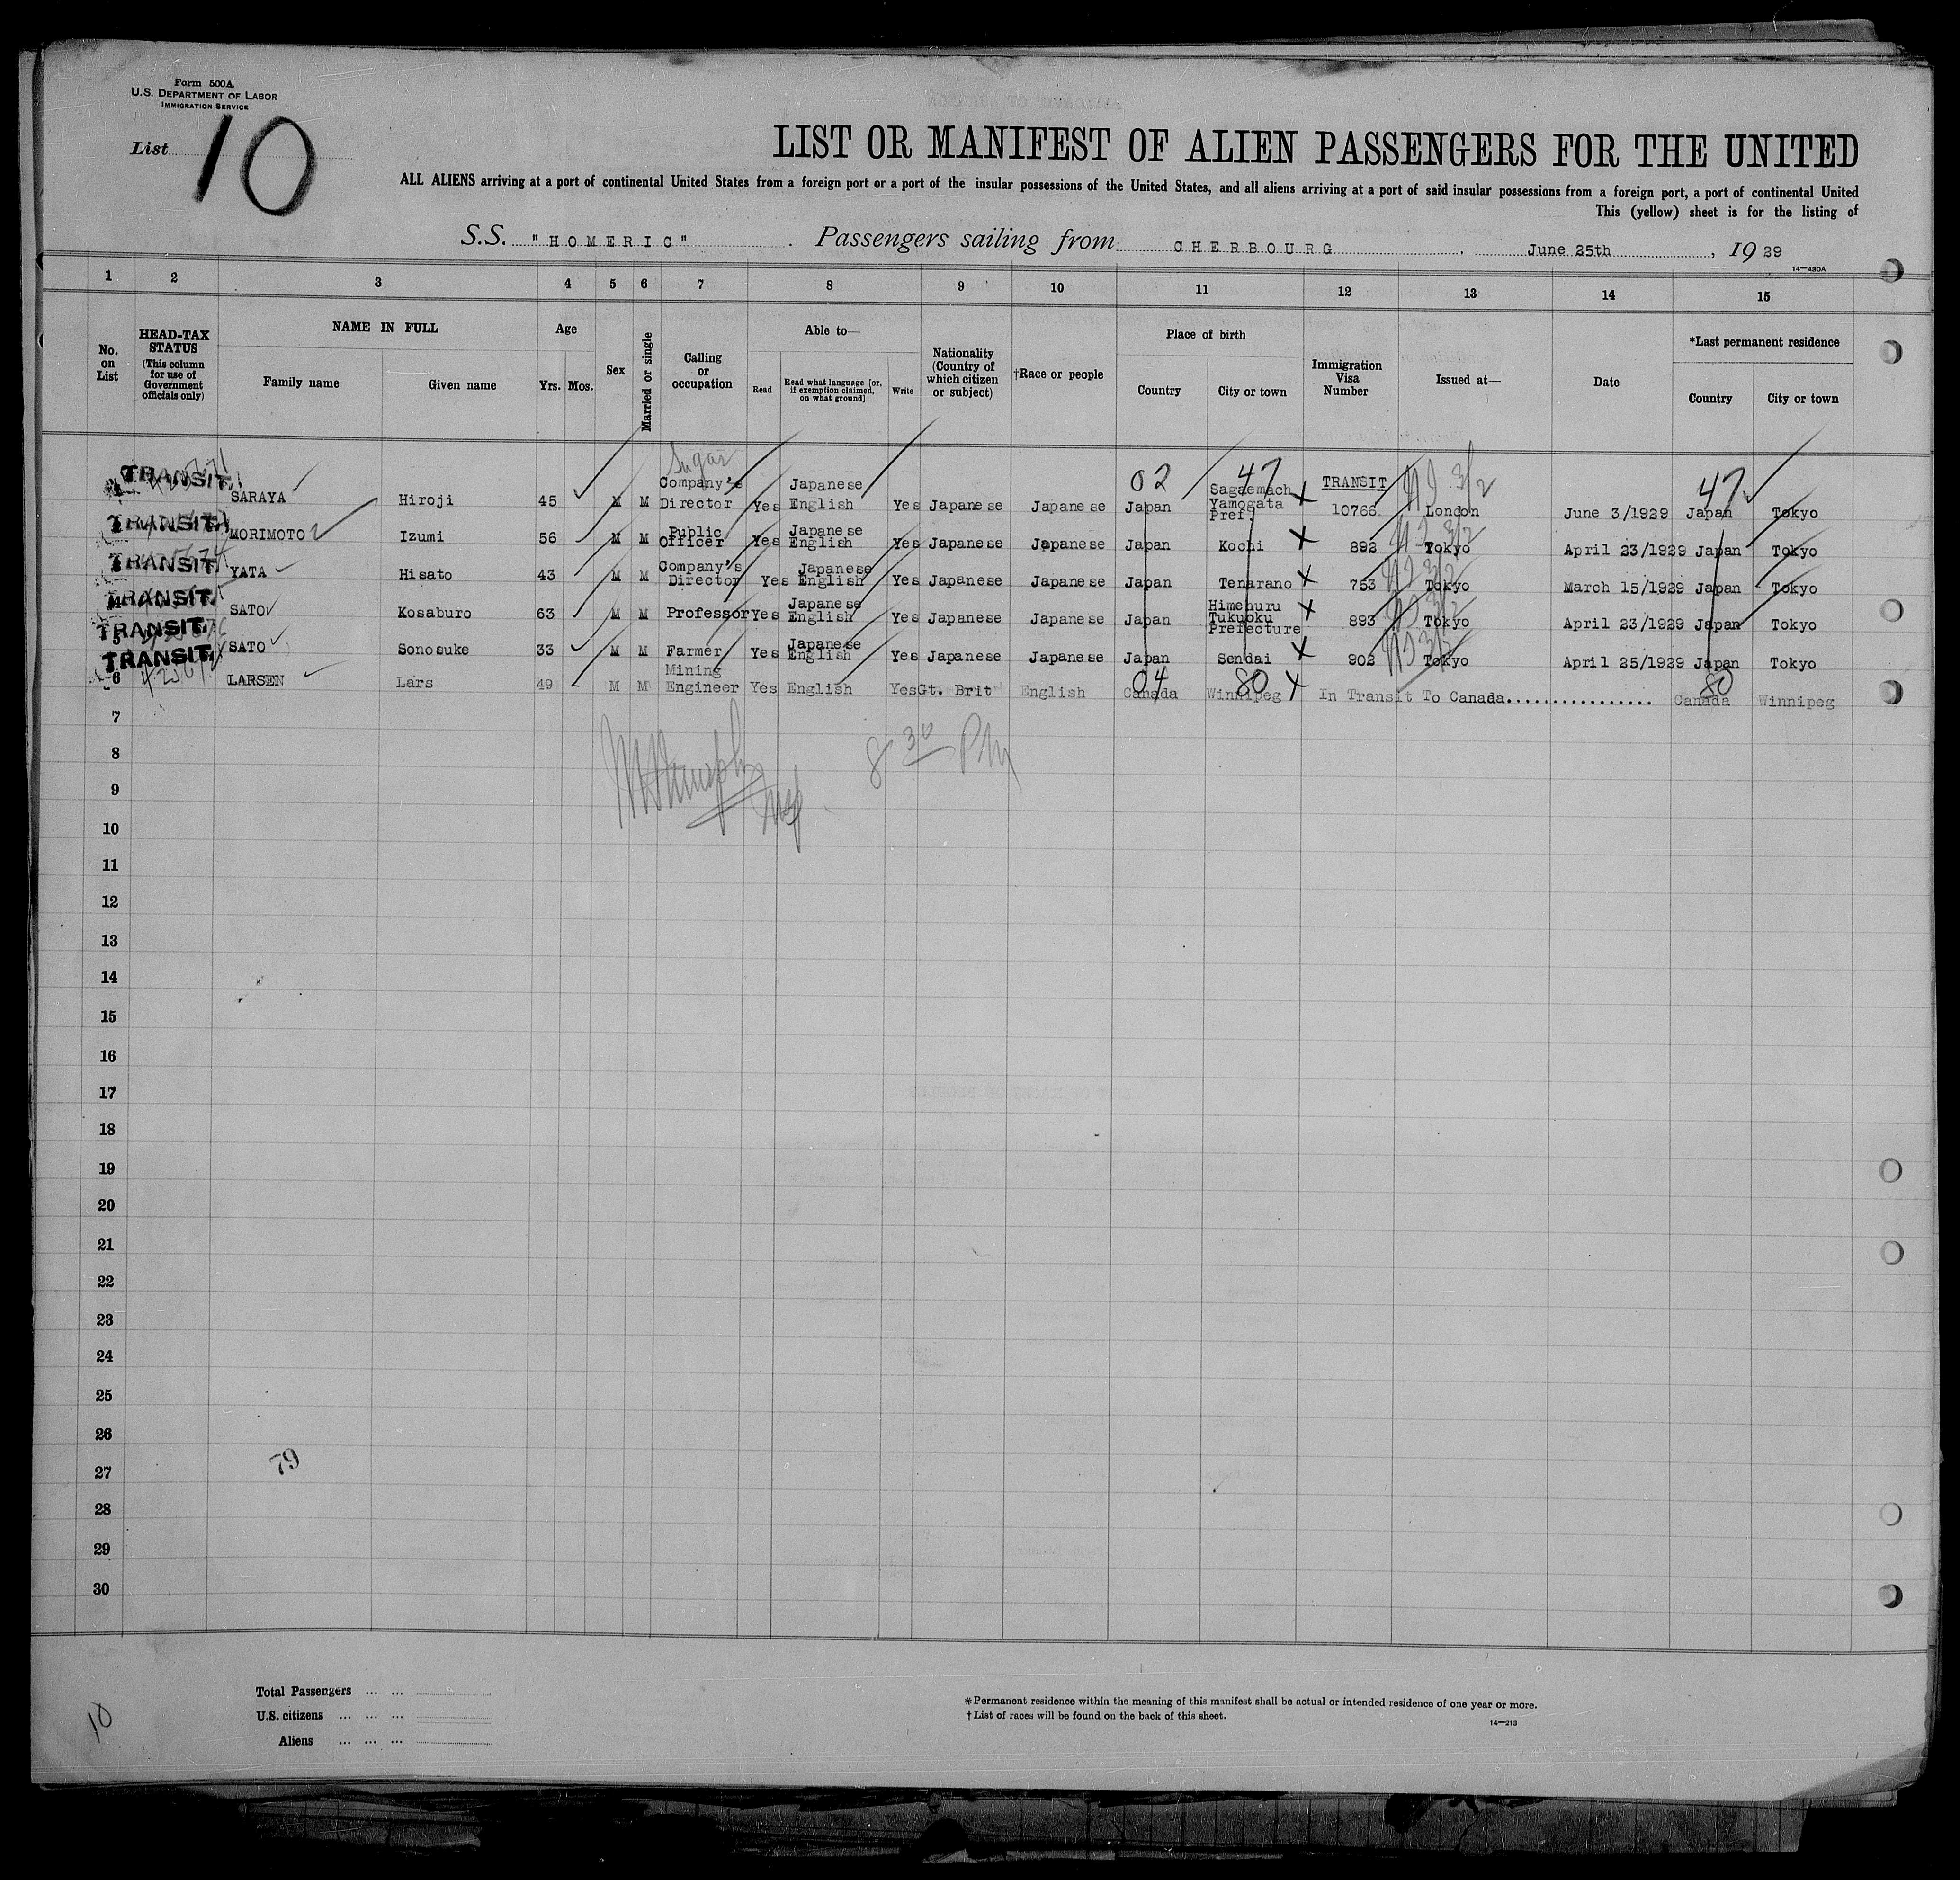 Form 500A
U.S. DEPARTMENT OF LABOR
IMMIGRATION SERVICE
List 10
LIST OR MANIFEST OF ALIEN PASSENGERS FOR THE UNITED
ALL ALIENS arriving at a port of continental United States from a foreign port or a port of the insular possessions of the United States, and all aliens arriving at a port of said insular possessions from a foreign port, a port of continental United
This (yellow) sheet is for the listing of
S.S. "HOMERIC" Passengers sailing from CHERBOURG, June 25th, 19 29
14—480A
1 2 3 4 5 6 7 8 9 10 11 12 13 14 15
No. on List
HEAD-TAX STATUS (This column for use of Government officials only)
NAME IN FULL
Family name Given name
Age
Yrs. Mos.
Sex
Married or single
Calling or occupation
Able to—
Read Read what language [or, if exemption claimed, on what ground] Write
Nationality (Country of which citizen or subject)
†Race or people
Place of birth
Country City or town
Immigration Visa Number
Issued at—
Date
*Last permanent residence
Country City or town
Sugar
02 47 TRANSIT 47
TRANSIT. SARAYA Hiroji 45 M M Company's Director Yes Japanese English Yes Japanese Japanese Japan Sagaemach Yamogata Pref. 10766 London June 3/1929 Japan Tokyo
TRANSIT. MORIMOTO Izumi 56 M M Public Officer Yes Japanese English Yes Japanese Japanese Japan Kochi 892 Tokyo April 23/1929 Japan Tokyo
TRANSIT. YATA Hisato 43 M M Company's Director Yes Japanese English Yes Japanese Japanese Japan Tenarano 753 Tokyo March 15/1929 Japan Tokyo
TRANSIT. SATO Kosaburo 63 M M Professor Yes Japanese English Yes Japanese Japanese Japan Himehuru Tukuoku Prefecture 893 Tokyo April 23/1929 Japan Tokyo
TRANSIT. SATO Sonosuke 33 M M Farmer Yes Japanese English Yes Japanese Japanese Japan Sendai 902 Tokyo April 25/1929 Japan Tokyo
TRANSIT.
04 80 80
6 LARSEN Lars 49 M M Mining Engineer Yes English Yes Gt. Brit English Canada Winnipeg In Transit To Canada................ Canada Winnipeg
7
8 8 30 PM
9
10
11
12
13
14
15
16
17
18
19
20
21
22
23
24
25
26
27 79
28
29
30
Total Passengers ... ...
U.S. citizens ... ... ...
Aliens ... ... ...
10
*Permanent residence within the meaning of this manifest shall be actual or intended residence of one year or more.
†List of races will be found on the back of this sheet.
14—213